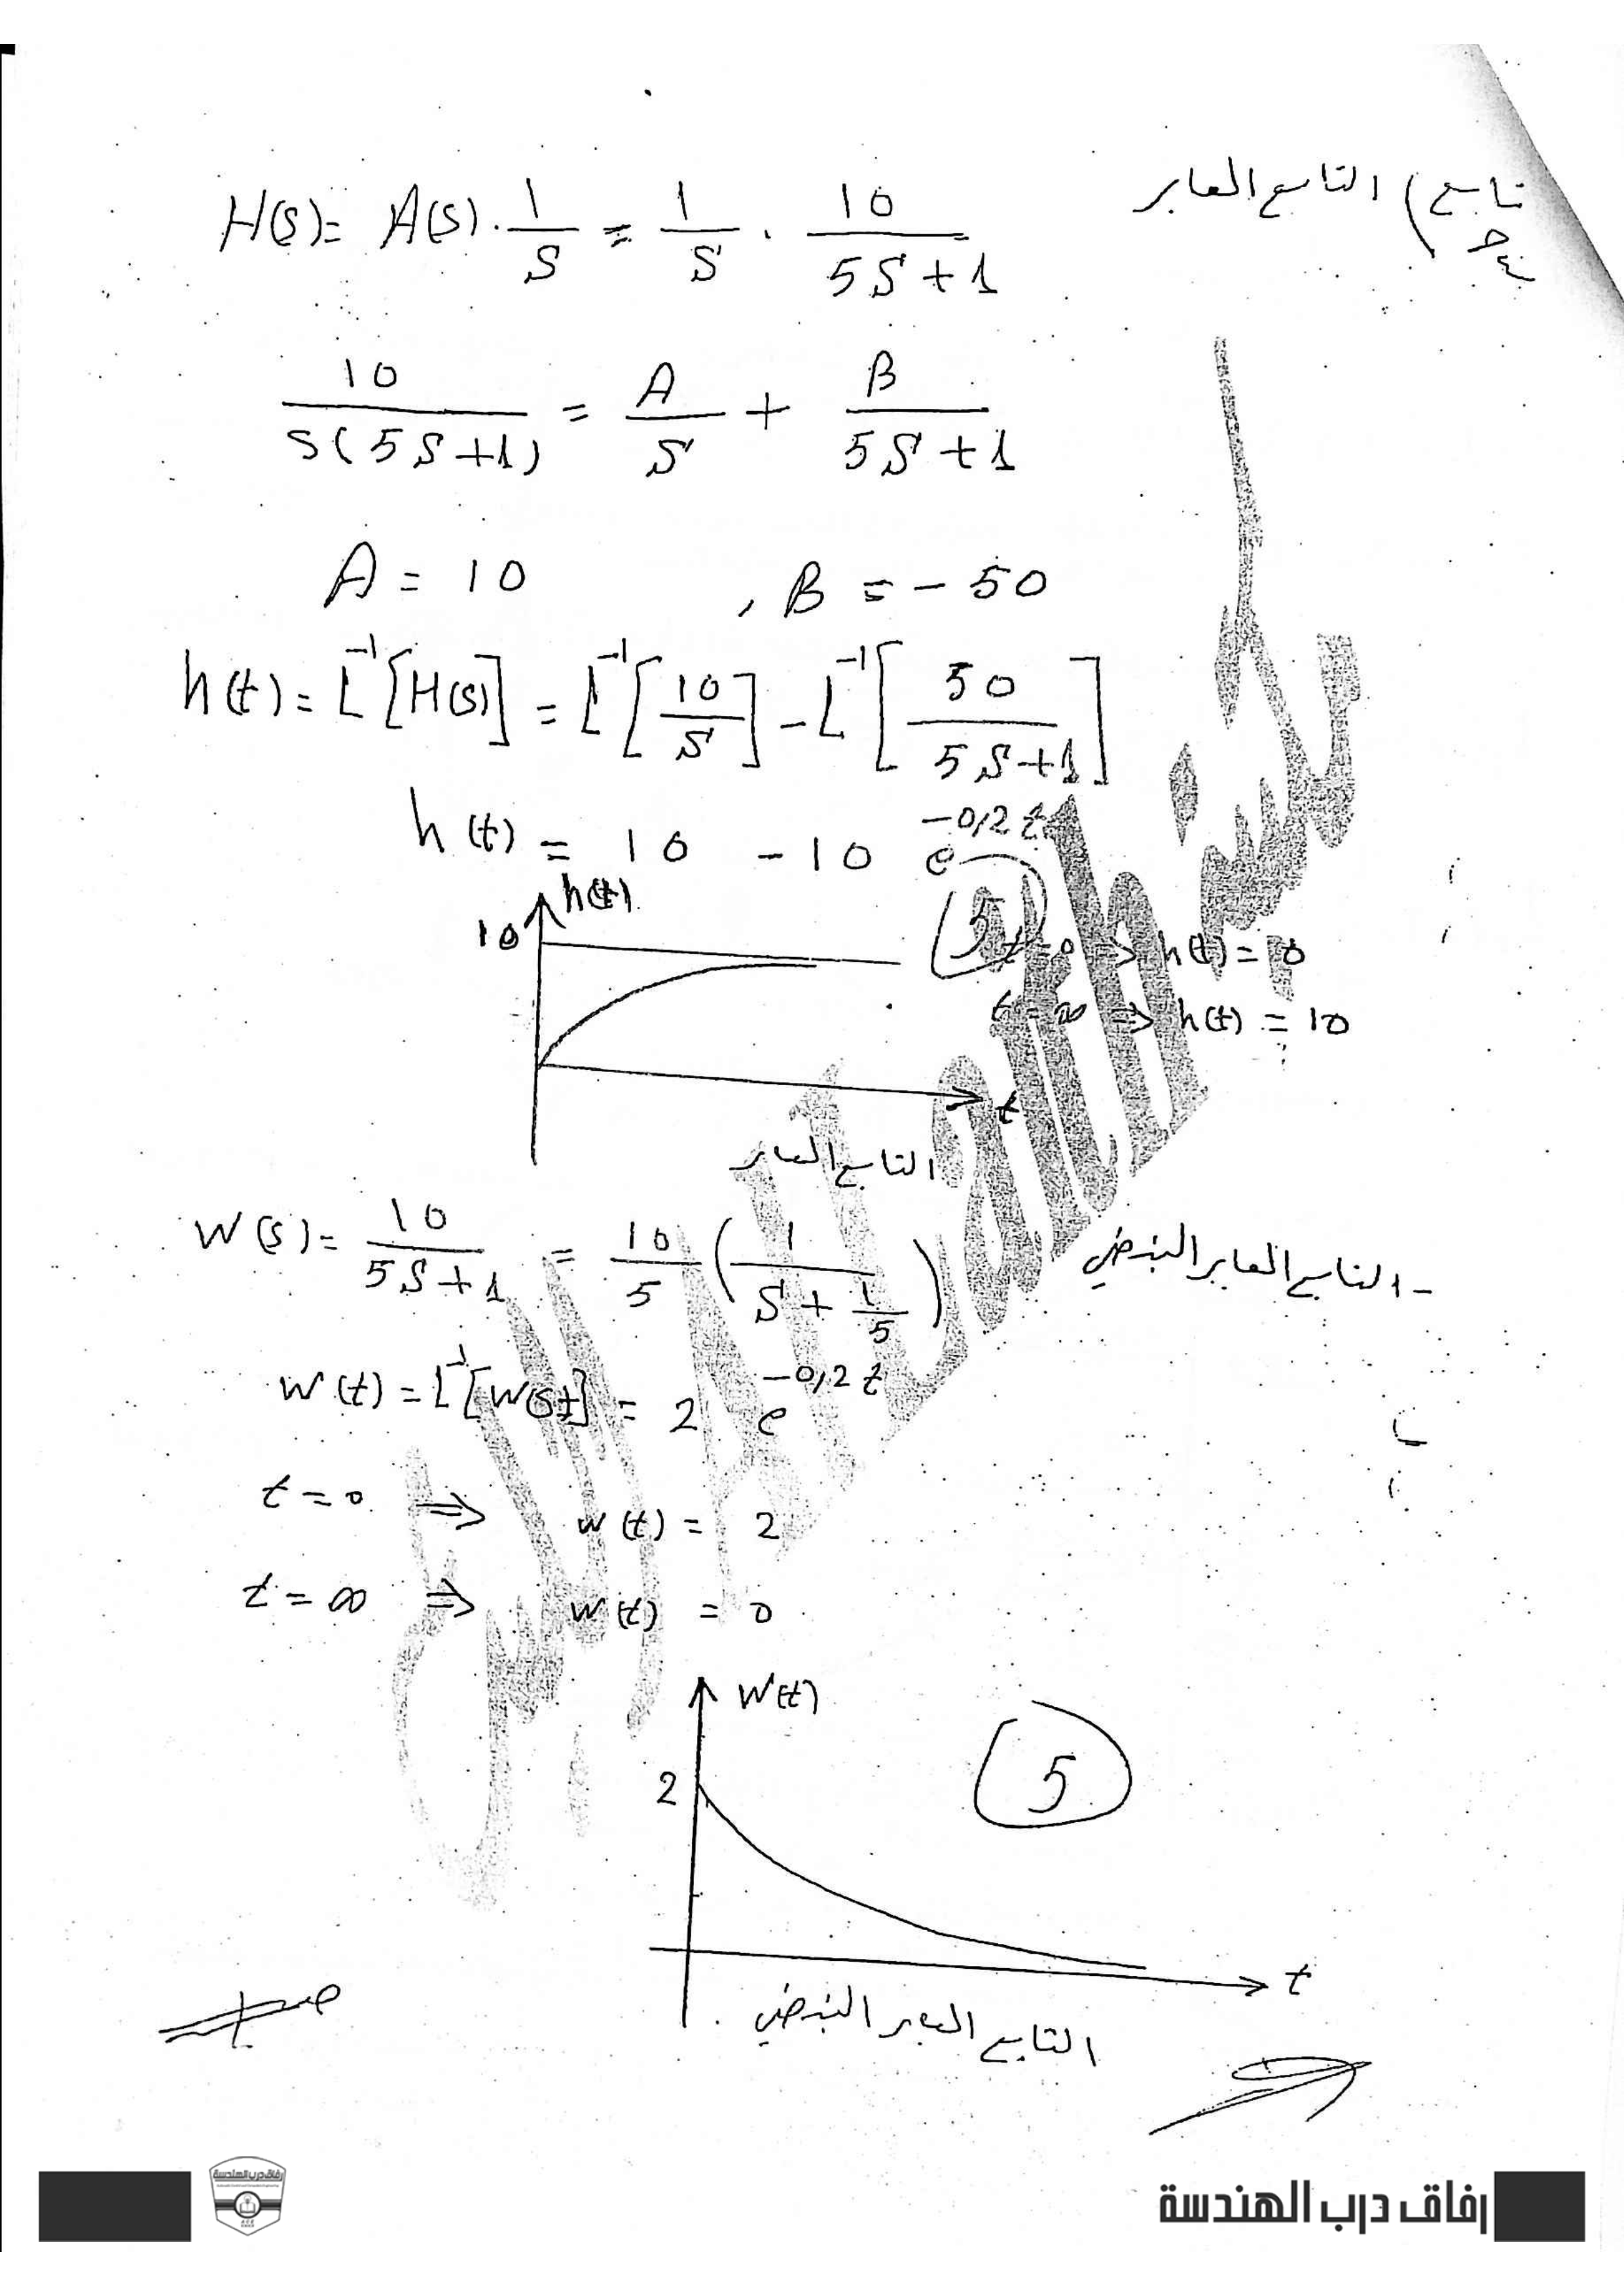 تابع جـ) التابع العابر
H(s)= A(s) . 1/S = 1/S . 10/(5S+1)
10/(S(5S+1)) = A/S + B/(5S+1)
A = 10 , B = - 50
h(t) = L⁻¹[H(s)] = L⁻¹[10/S] - L⁻¹[50/(5S+1)]
h(t) = 10 - 10 e^(-0,2t)
h(t)
5
10
t=∞ ⇒ h(t) = 10
t
التابع العابر
- التابع العابر النبضي
W(s) = 10/(5S+1) = 10/5 (1/(S+1/5))
w(t) = = 2 e^(-0,2t)
t = 0 ⇒ w(t) = 2
t = ∞ ⇒ w(t) = 0
W(t)
5
2
t
التابع العابر النبضي
رفاق درب الهندسة